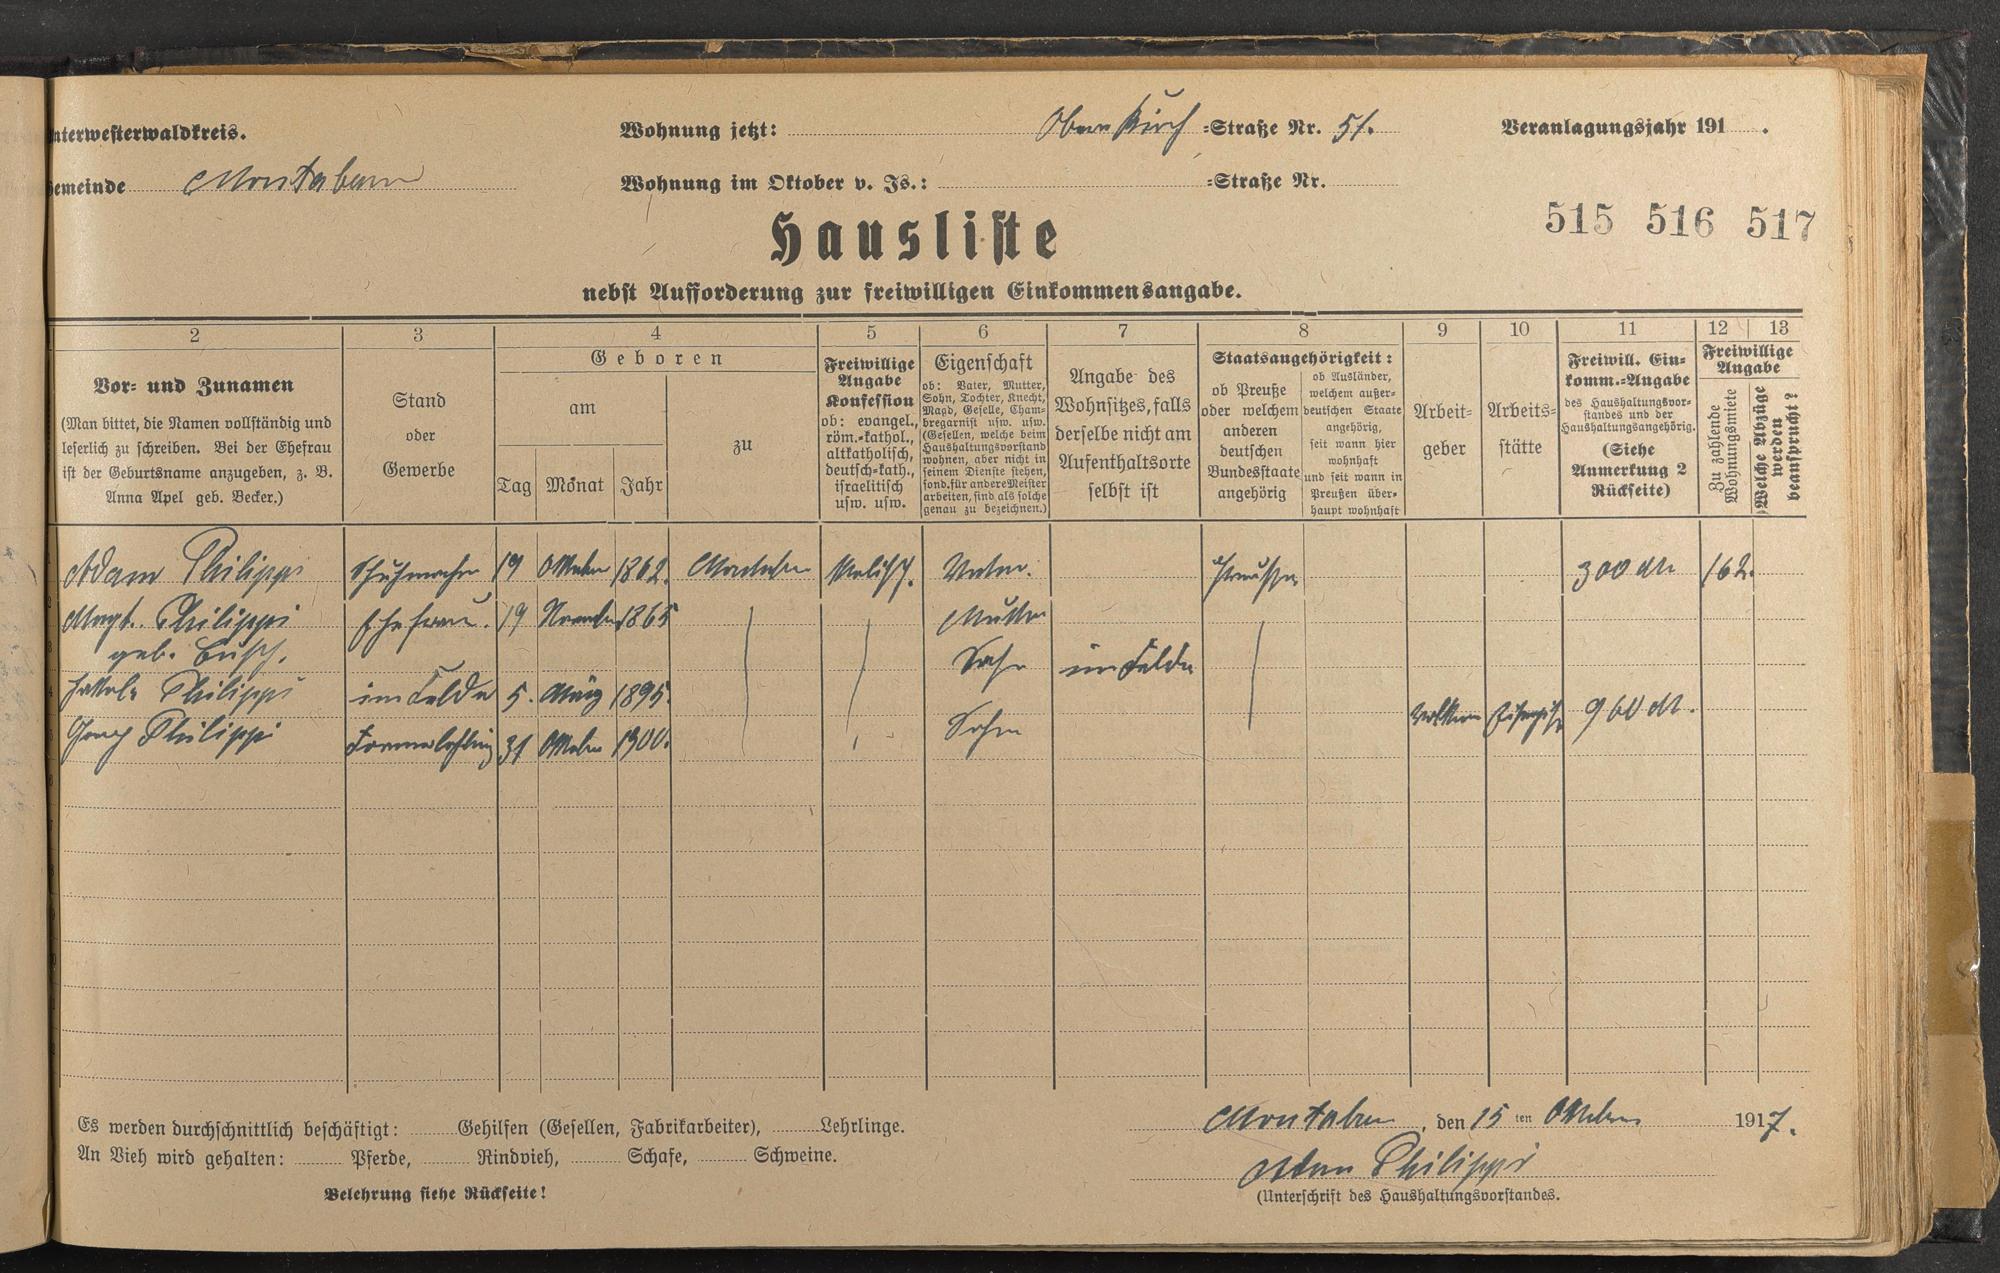 nterwesterwaldkreis.
Wohnung jetzt: Kirch =Straße Nr. 51.
Veranlagungsjahr 191 .
emeinde Montabaur
Wohnung im Oktober v. Js.: =Straße Nr.
515 516 517
Hausliste
nebst Aufforderung zur freiwilligen Einkommensangabe.
2 3 4 5 6 7 8 9 10 11 12 13
Vor= und Zunamen
(Man bittet, die Namen vollständig und
leserlich zu schreiben. Bei der Ehefrau
ist der Geburtsname anzugeben, z. B.
Anna Apel geb. Becker.)
Stand
oder
Gewerbe
Geboren
am
Tag Monat Jahr
zu
Freiwillige
Angabe
Konfession
ob: evangel.,
röm.=kathol.,
altkatholisch,
deutsch=kath.,
israelitisch
usw. usw.
Eigenschaft
ob: Vater, Mutter,
Sohn, Tochter, Knecht,
Magd, Geselle, Cham=
bregarnist usw. usw.
(Gesellen, welche beim
Haushaltungsvorstand
wohnen, aber nicht in
seinem Dienste stehen,
sond. für andere Meister
arbeiten, sind als solche
genau zu bezeichnen.)
Angabe des
Wohnsitzes, falls
derselbe nicht am
Aufenthaltsorte
selbst ist
Staatsangehörigkeit:
ob Preuße
oder welchem
anderen
deutschen
Bundesstaate
angehörig
ob Ausländer,
welchem außer=
deutschen Staate
angehörig,
seit wann hier
wohnhaft
und seit wann in
Preußen über=
haupt wohnhaft
Arbeit=
geber
Arbeits=
stätte
Freiwill. Ein=
komm.=Angabe
des Haushaltungsvor=
standes und der
Haushaltungsangehörig.
(Siehe
Anmerkung 2
Rückseite)
Freiwillige
Angabe
Zu zahlende
Wohnungsmiete
Welche Abzüge
werden
beansprucht?
Adam Philippi Schuhmacher 19 Oktober 1862. Montabaur Kathol. Vater. Preußen 300 M 162.
Magt. Philippi Ehefrau. 19 November 1865 Mutter
geb. Busch.
Sohn im Felde
Jakob Philippi im Felde 5. März 1895.
Georg Philippi Formerlehrling 31 Oktober 1900. Sohn 960 M.
Es werden durchschnittlich beschäftigt: Gehilfen (Gesellen, Fabrikarbeiter), Lehrlinge.
An Vieh wird gehalten: Pferde, Rindvieh, Schafe, Schweine.
Belehrung siehe Rückseite!
Montabaur, den 15 ten Oktober 1917.
Adam Philippi
(Unterschrift des Haushaltungsvorstandes.